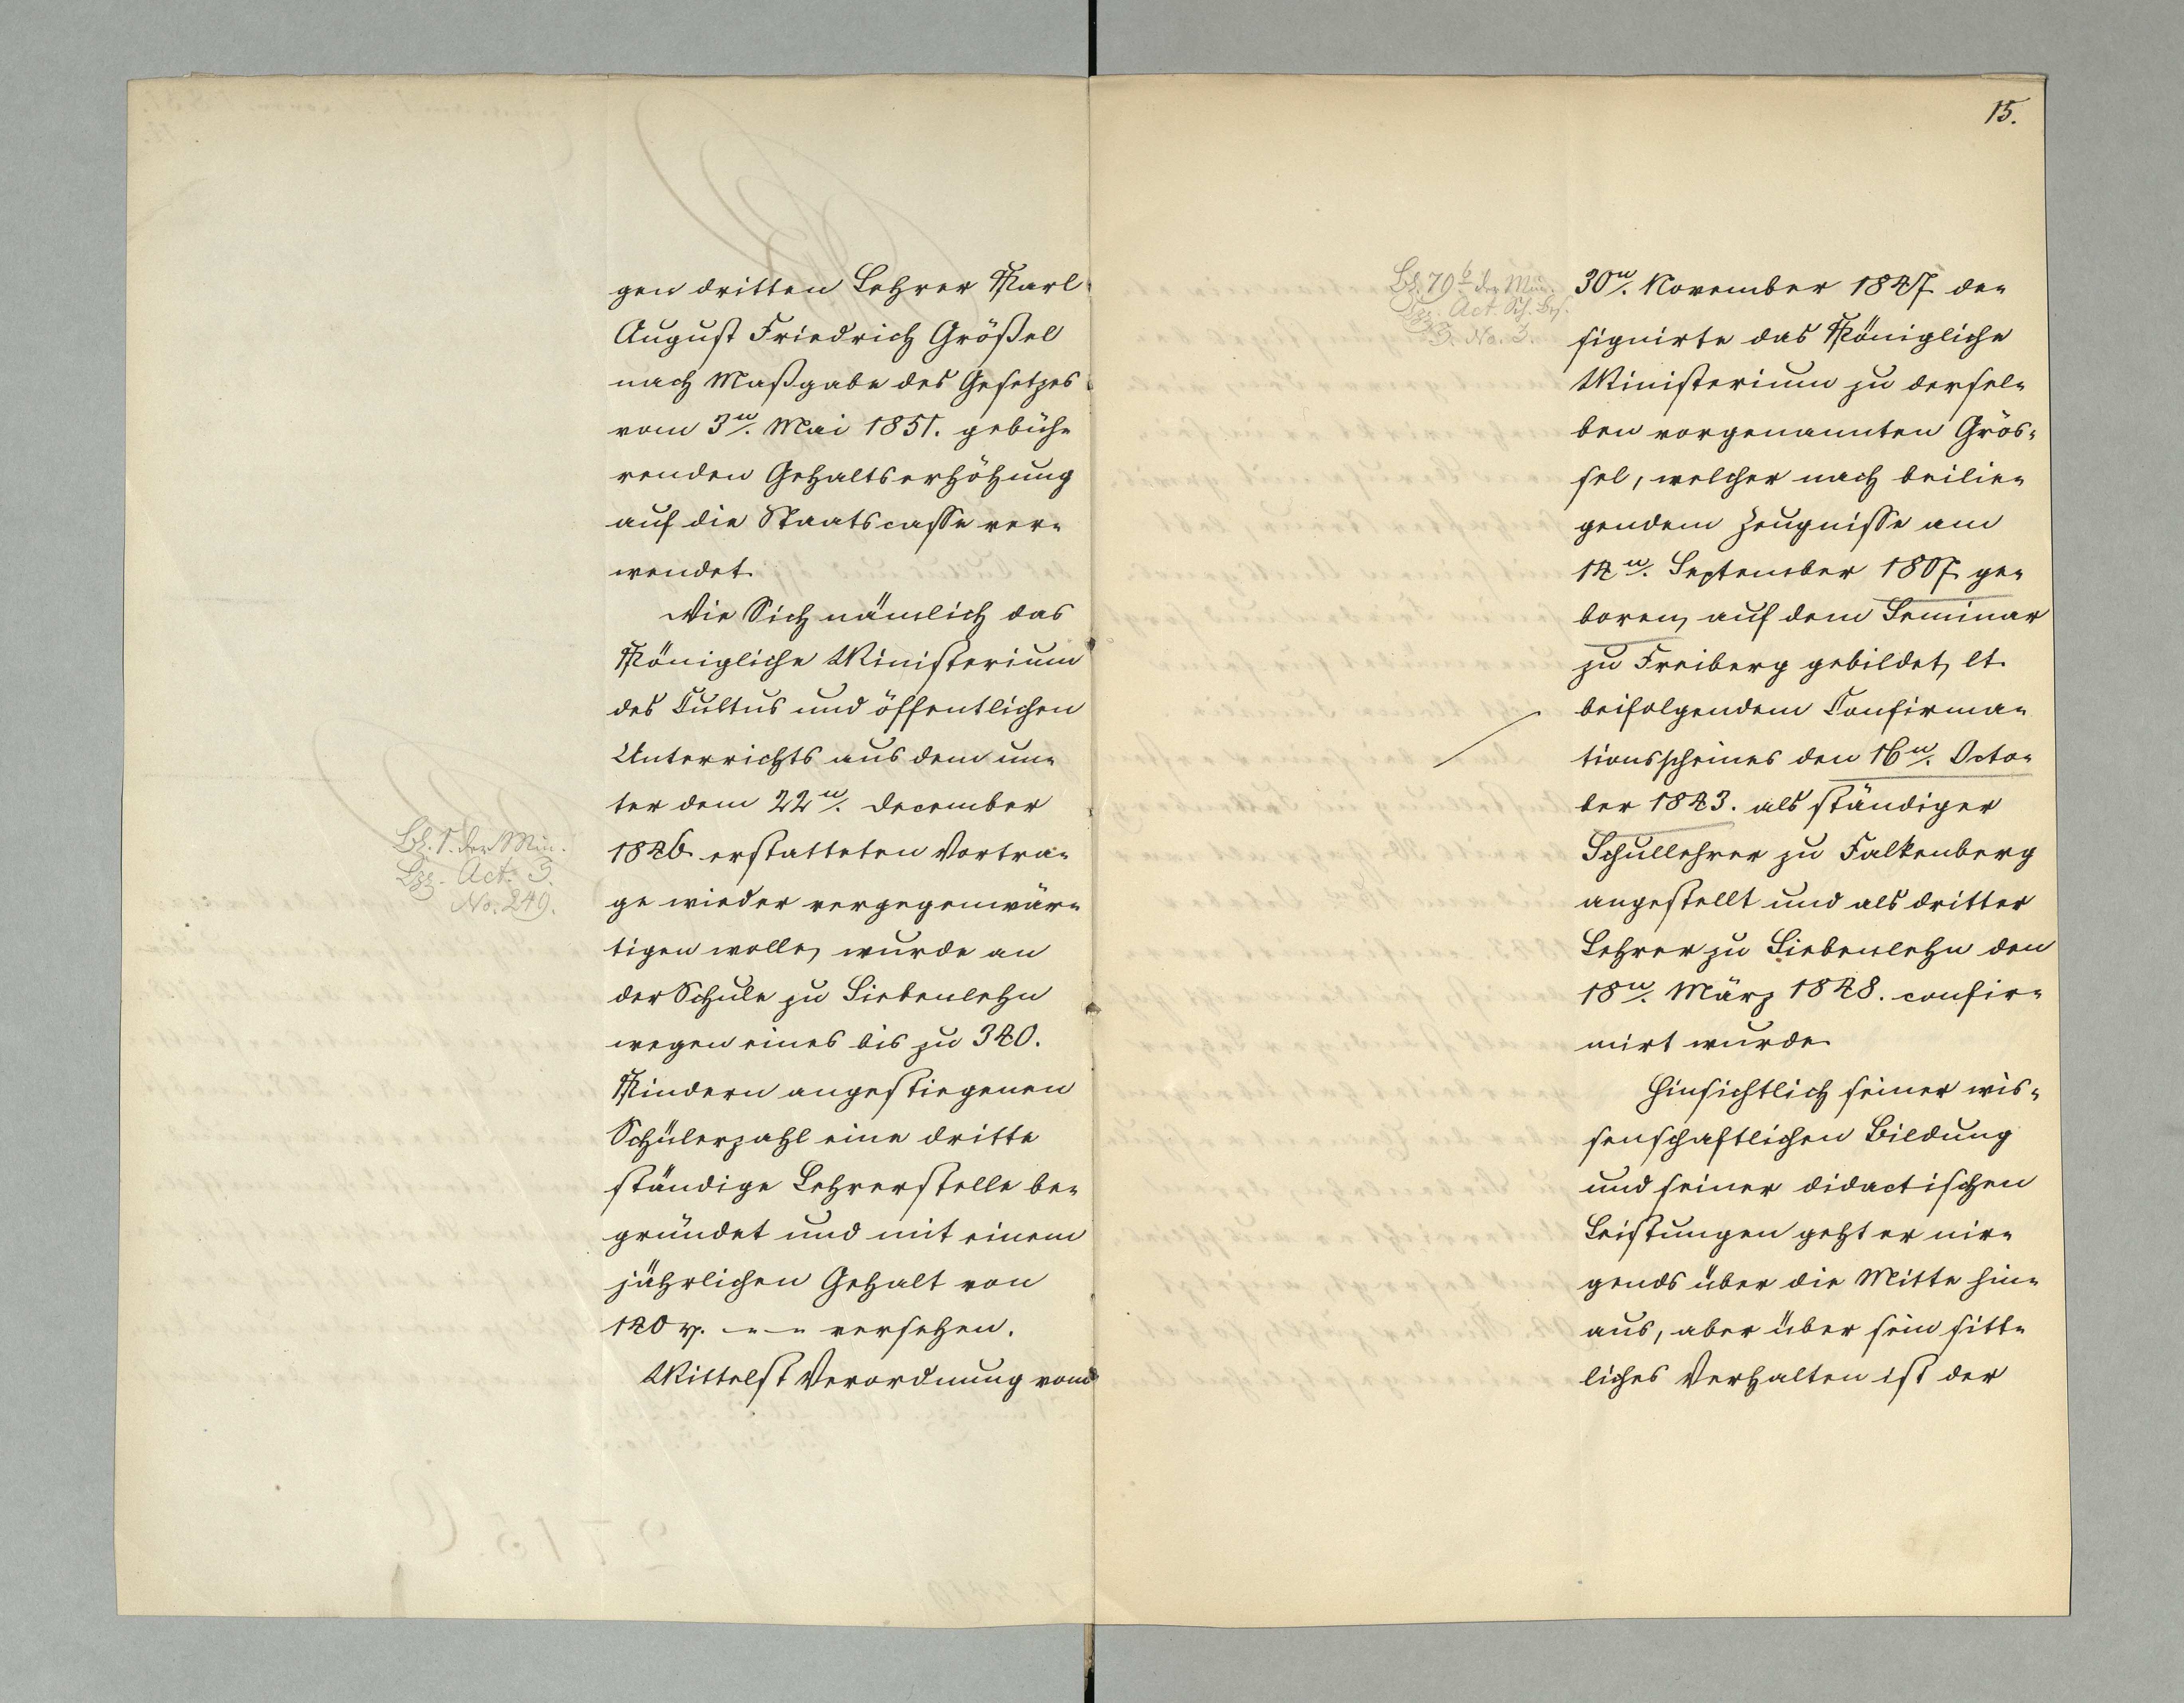 gen dritten Lehrer Karl
August Friedrich Größel
nach Maßgabe des Gesetzes
vom 3n. Mai 1851. gebüh-
renden Gehaltserhöhung
auf die Staatscasse ver-
wendet.
Wie Sich nämlich das
Königliche Ministerium
des Cultus und öffentlichen
Unterrichts aus dem un-
ter dem 22n. December
1846. erstatteten Vortra-
ge wieder vergegenwär-
tigen wolle, wurde an
der Schule zu Siebenlehn
wegen eines bis zu 340.
Kindern angestiegenen
Schülerzahl eine dritte
ständige Lehrerstelle be-
gründet und mit einem
jährlichen Gehalt von
140 r. -"-"- versehen.
Mittelst Verordnung vom
Bl. 1. der Min.
Act. S.
No. 249.
15.
30n. November 1847. de-
signirte das Königliche
Ministerium zu dersel-
ben vorgenannten Grös-
sel, welcher nach beilie-
gendem Zeugnisse am
14n. September 1807. ge-
boren, auf dem Seminar
zu Freiberg gebildet, lt.
beifolgendem Confirma-
tionsscheines den 16n. Octo-
ber 1843. als ständiger
Schullehrer zu Falkenberg
angestellt und als dritter
Lehrer zu Siebenlehn den
18n. März 1848. confir-
mirt wurde.
Hinsichtlich seiner wis-
senschaftlichen Bildung
und seiner didactischen
Leistungen geht er nir-
gends über die Mitte hin-
aus, aber über sein sitt-
liches Verhalten ist der
Bl. 79b der Min.
Act. Sch.
S. No. 3.